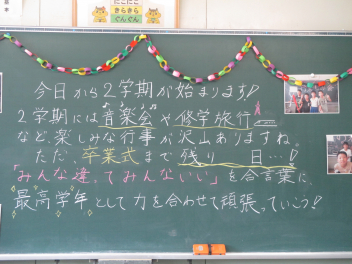 にこにこ
きらきら
ぐんぐん
今日から2学期が始まります!
2学期には音楽会や修学旅行
など、楽しみな行事が沢山ありますね。
ただ、卒業式まで残り 日…!
「みんな違ってみんないい」を合言葉に、
最高学年として力を合わせて頑張っていこう!